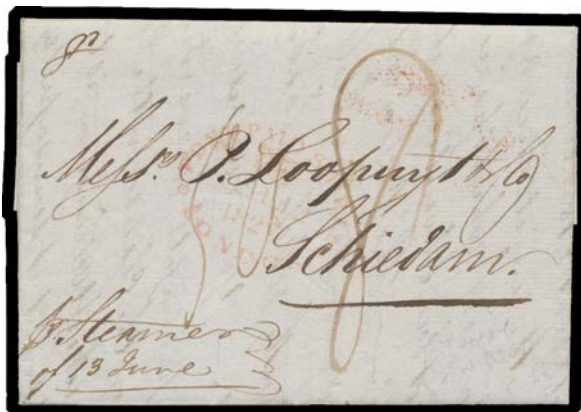 pr
Messrs. P. Loopuyt & Co
Schiedam.
pr Steamer
of 13 June